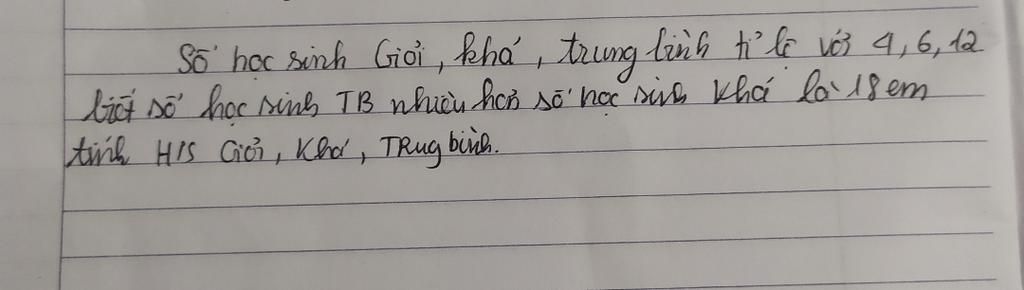 Số học sinh Giỏi, khá, trung bình tỉ lệ với 4, 6, 12
biết số học sinh TB nhiều hơn số học sinh khá là 18 em
tính H/S Giỏi, Khá, TRug bình.